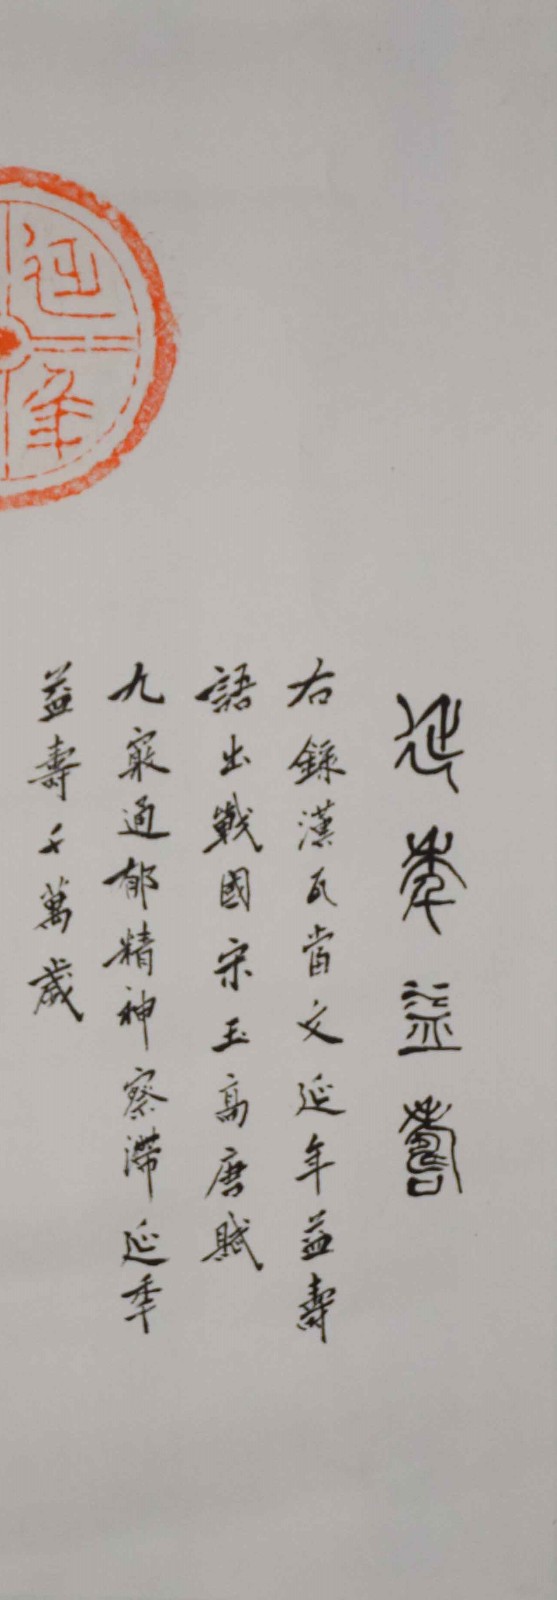 延年益壽
右錄漢瓦當文延年益壽
語出戰國宋玉高唐賦
九竅通郁精神察滯延年
益壽千萬歲
延年